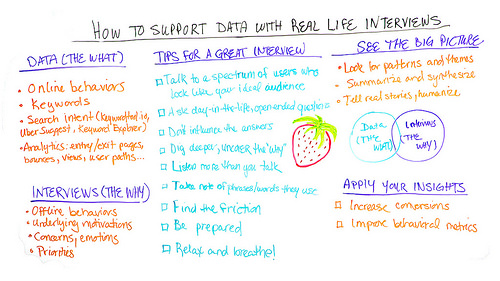 HOW TO SUPPORT DATA WITH REAL LIFE INTERVIEWS
DATA (THE WHAT)
• Online behaviors
• Keywords
• Search intent (Keywordtool.io,
Uber Suggest, Keyword Explorer)
• Analytics: entry/exit pages,
bounces, views, user paths...
INTERVIEWS (THE WHY)
• Offline behaviors
• Underlying motivations
• Concerns, emotions
• Priorities
TIPS FOR A GREAT INTERVIEW
Talk to a spectrum of users who
look like your ideal audience
Ask day-in-the-life, open-ended questions
Don't influence the answers
Dig deeper, uncover the "why"
Listen more than you talk
Take note of phrases/words they use
Find the friction
Be prepared
Relax and breathe!
SEE THE BIG PICTURE
• Look for patterns and themes
• Summarize and synthesize
• Tell real stories, humanize
Data
(THE
WHAT)
(THE
WHY)
APPLY YOUR INSIGHTS
Increase conversions
Improve behavioral metrics